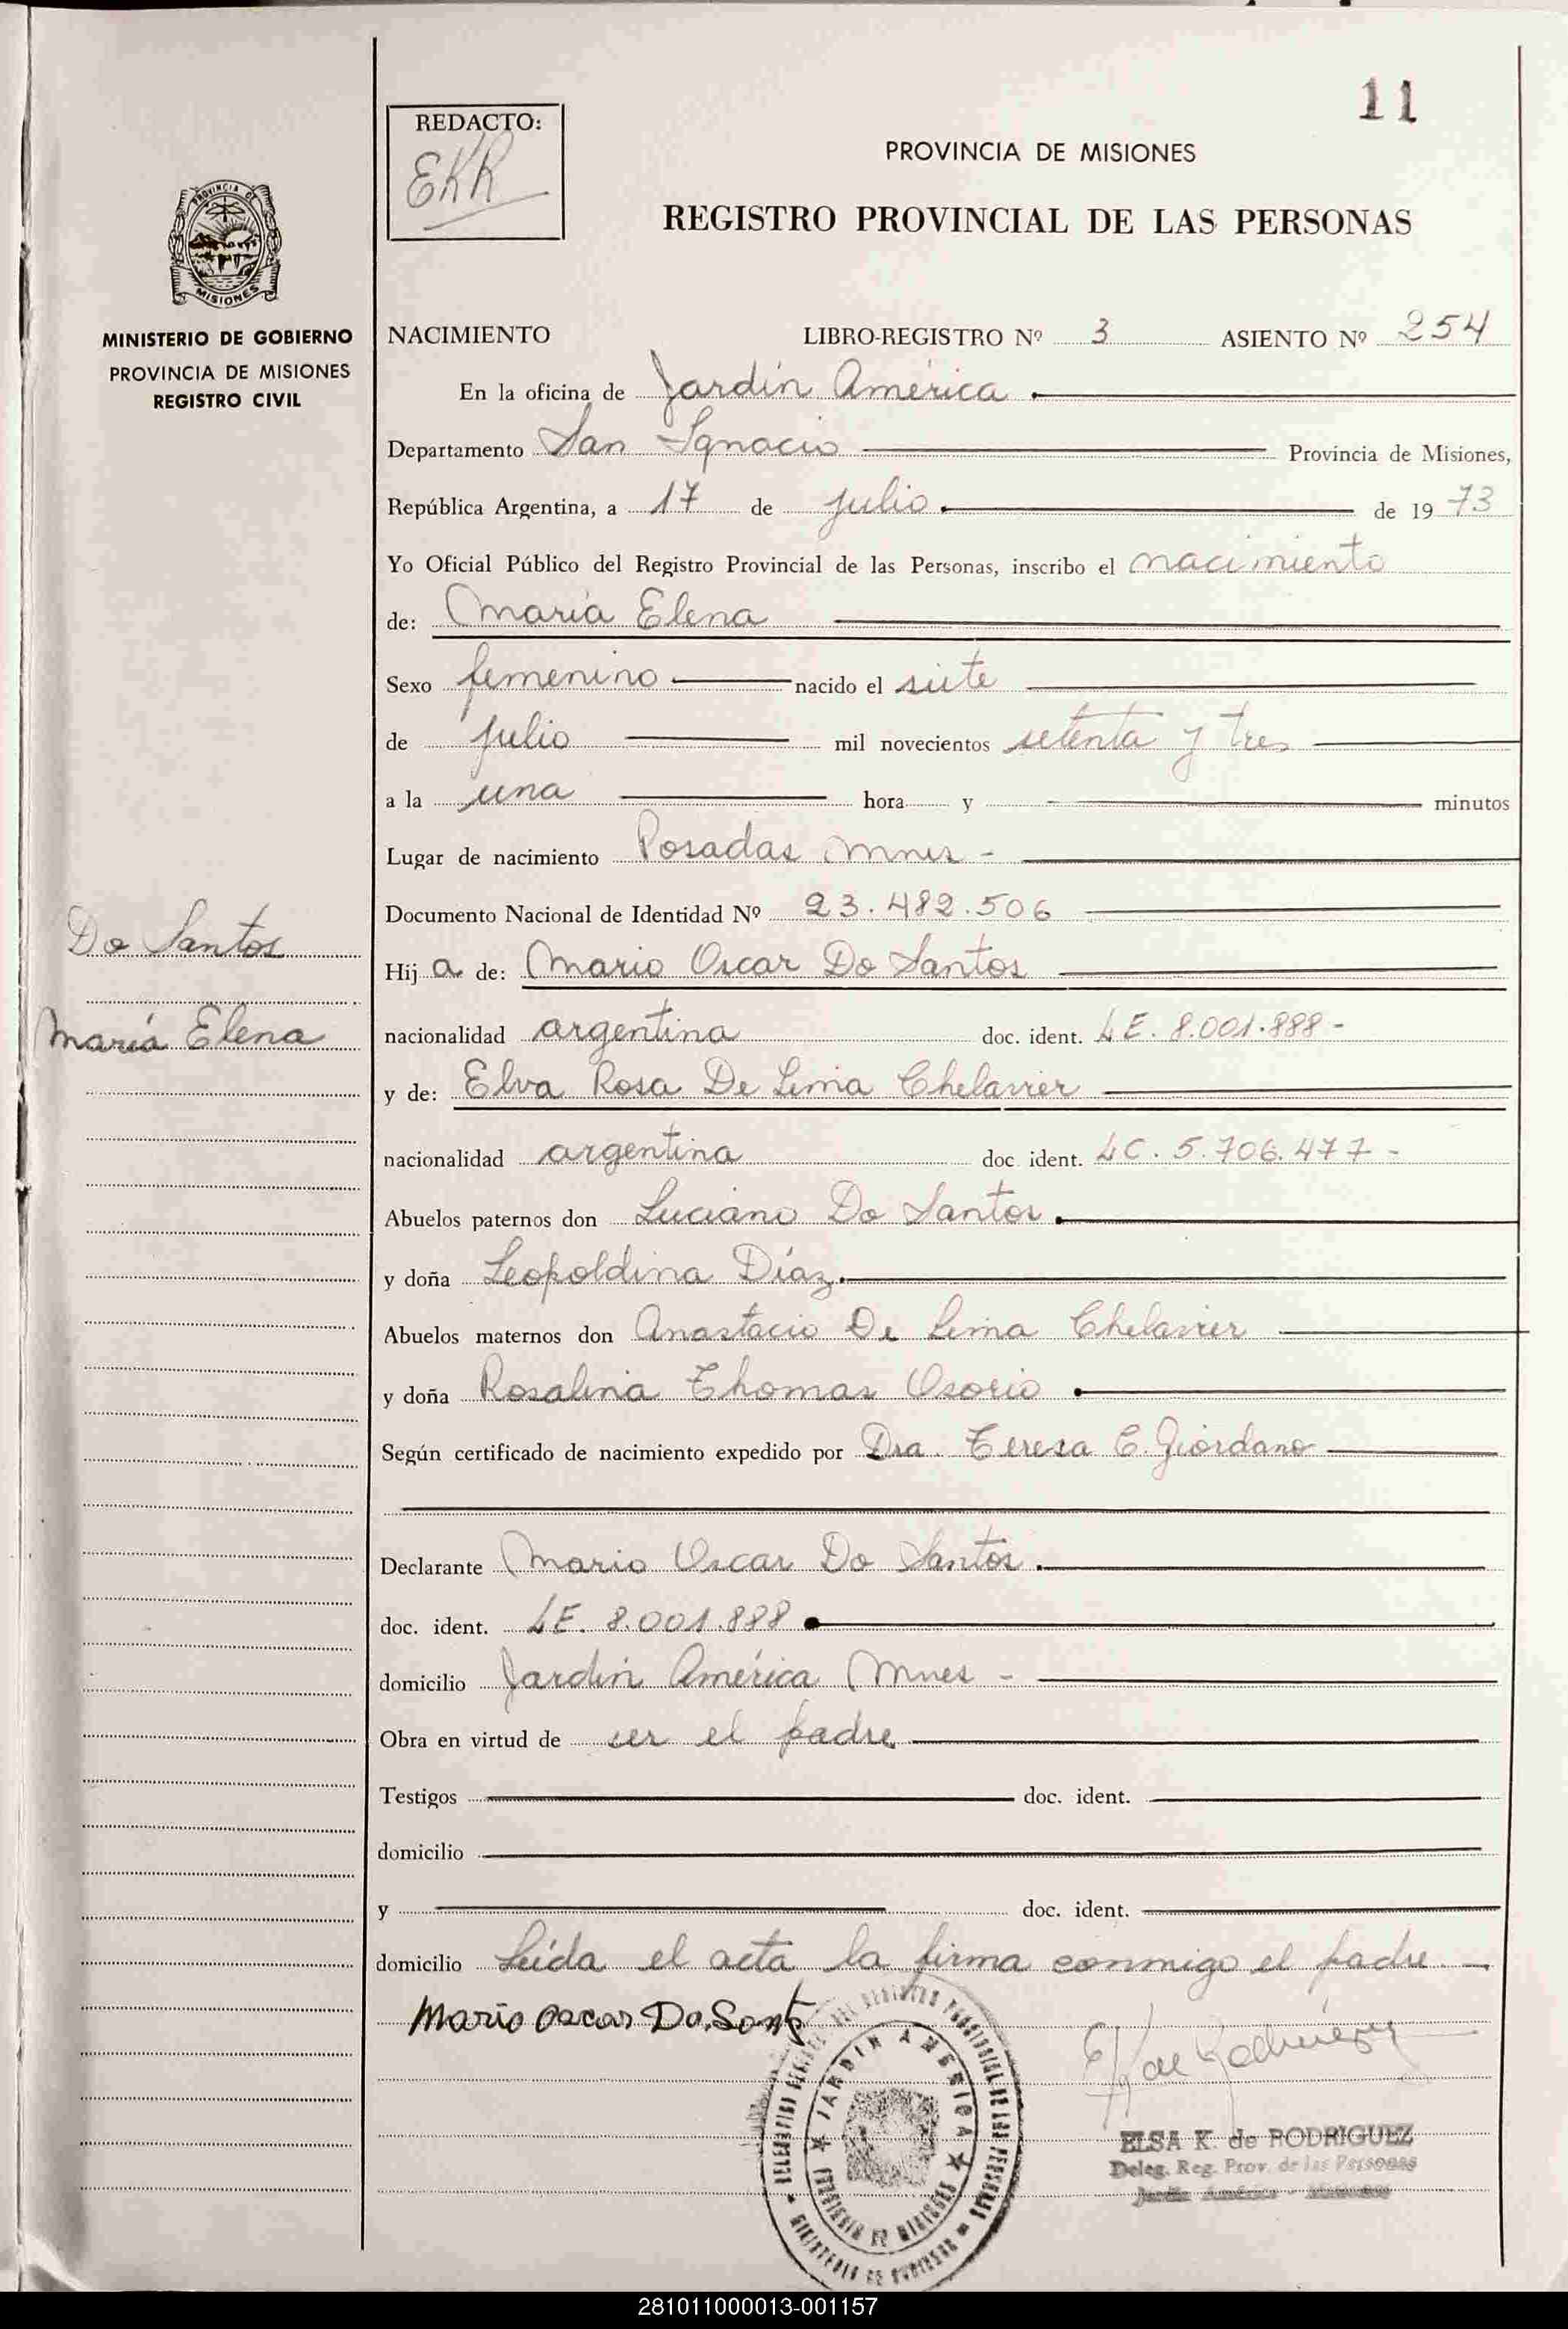 11
REDACTO:
EKR
PROVINCIA DE MISIONES
REGISTRO PROVINCIAL DE LAS PERSONAS
PROVINCIA DE
MISIONES
MINISTERIO DE GOBIERNO
PROVINCIA DE MISIONES
REGISTRO CIVIL
NACIMIENTO LIBRO-REGISTRO Nº 3 ASIENTO Nº 254
En la oficina de Jardín América
Departamento San Ignacio Provincia de Misiones,
República Argentina, a 17 de julio de 19 73
Yo Oficial Público del Registro Provincial de las Personas, inscribo el nacimiento
de: María Elena
Sexo femenino nacido el siete
de julio mil novecientos setenta y tres
a la una hora y minutos
Lugar de nacimiento Posadas Mnes -
Documento Nacional de Identidad Nº 23.482.506
Do Santos
María Elena
Hij a de: Mario Oscar Do Santos
nacionalidad argentina doc. ident. LE. 8.001.888 -
y de: Elva Rosa De Lima Chelavier
nacionalidad argentina doc ident. LC. 5.706.477 -
Abuelos paternos don Luciano Do Santos.
y doña Leopoldina Díaz.
Abuelos maternos don Anastacio De Lima Chelavier
y doña Rosalina Thomas Osorio
Según certificado de nacimiento expedido por Dra. Teresa C. Giordano
Declarante Mario Oscar Do Santos.
doc. ident. LE. 8.001.888
domicilio Jardín América Mnes -
Obra en virtud de ser el padre
Testigos doc. ident.
domicilio
y doc. ident.
domicilio Leída el acta la firma conmigo el padre. -
Mario Oscar Do Santos
E K de Rodríguez
JARDIN AMERICA
PROVINCIA DE MISIONES
MINISTERIO DE GOBIERNO
ELSA K. de RODRIGUEZ
Deleg. Reg. Prov. de las Personas
Jardín América - Misiones
281011000013-001157